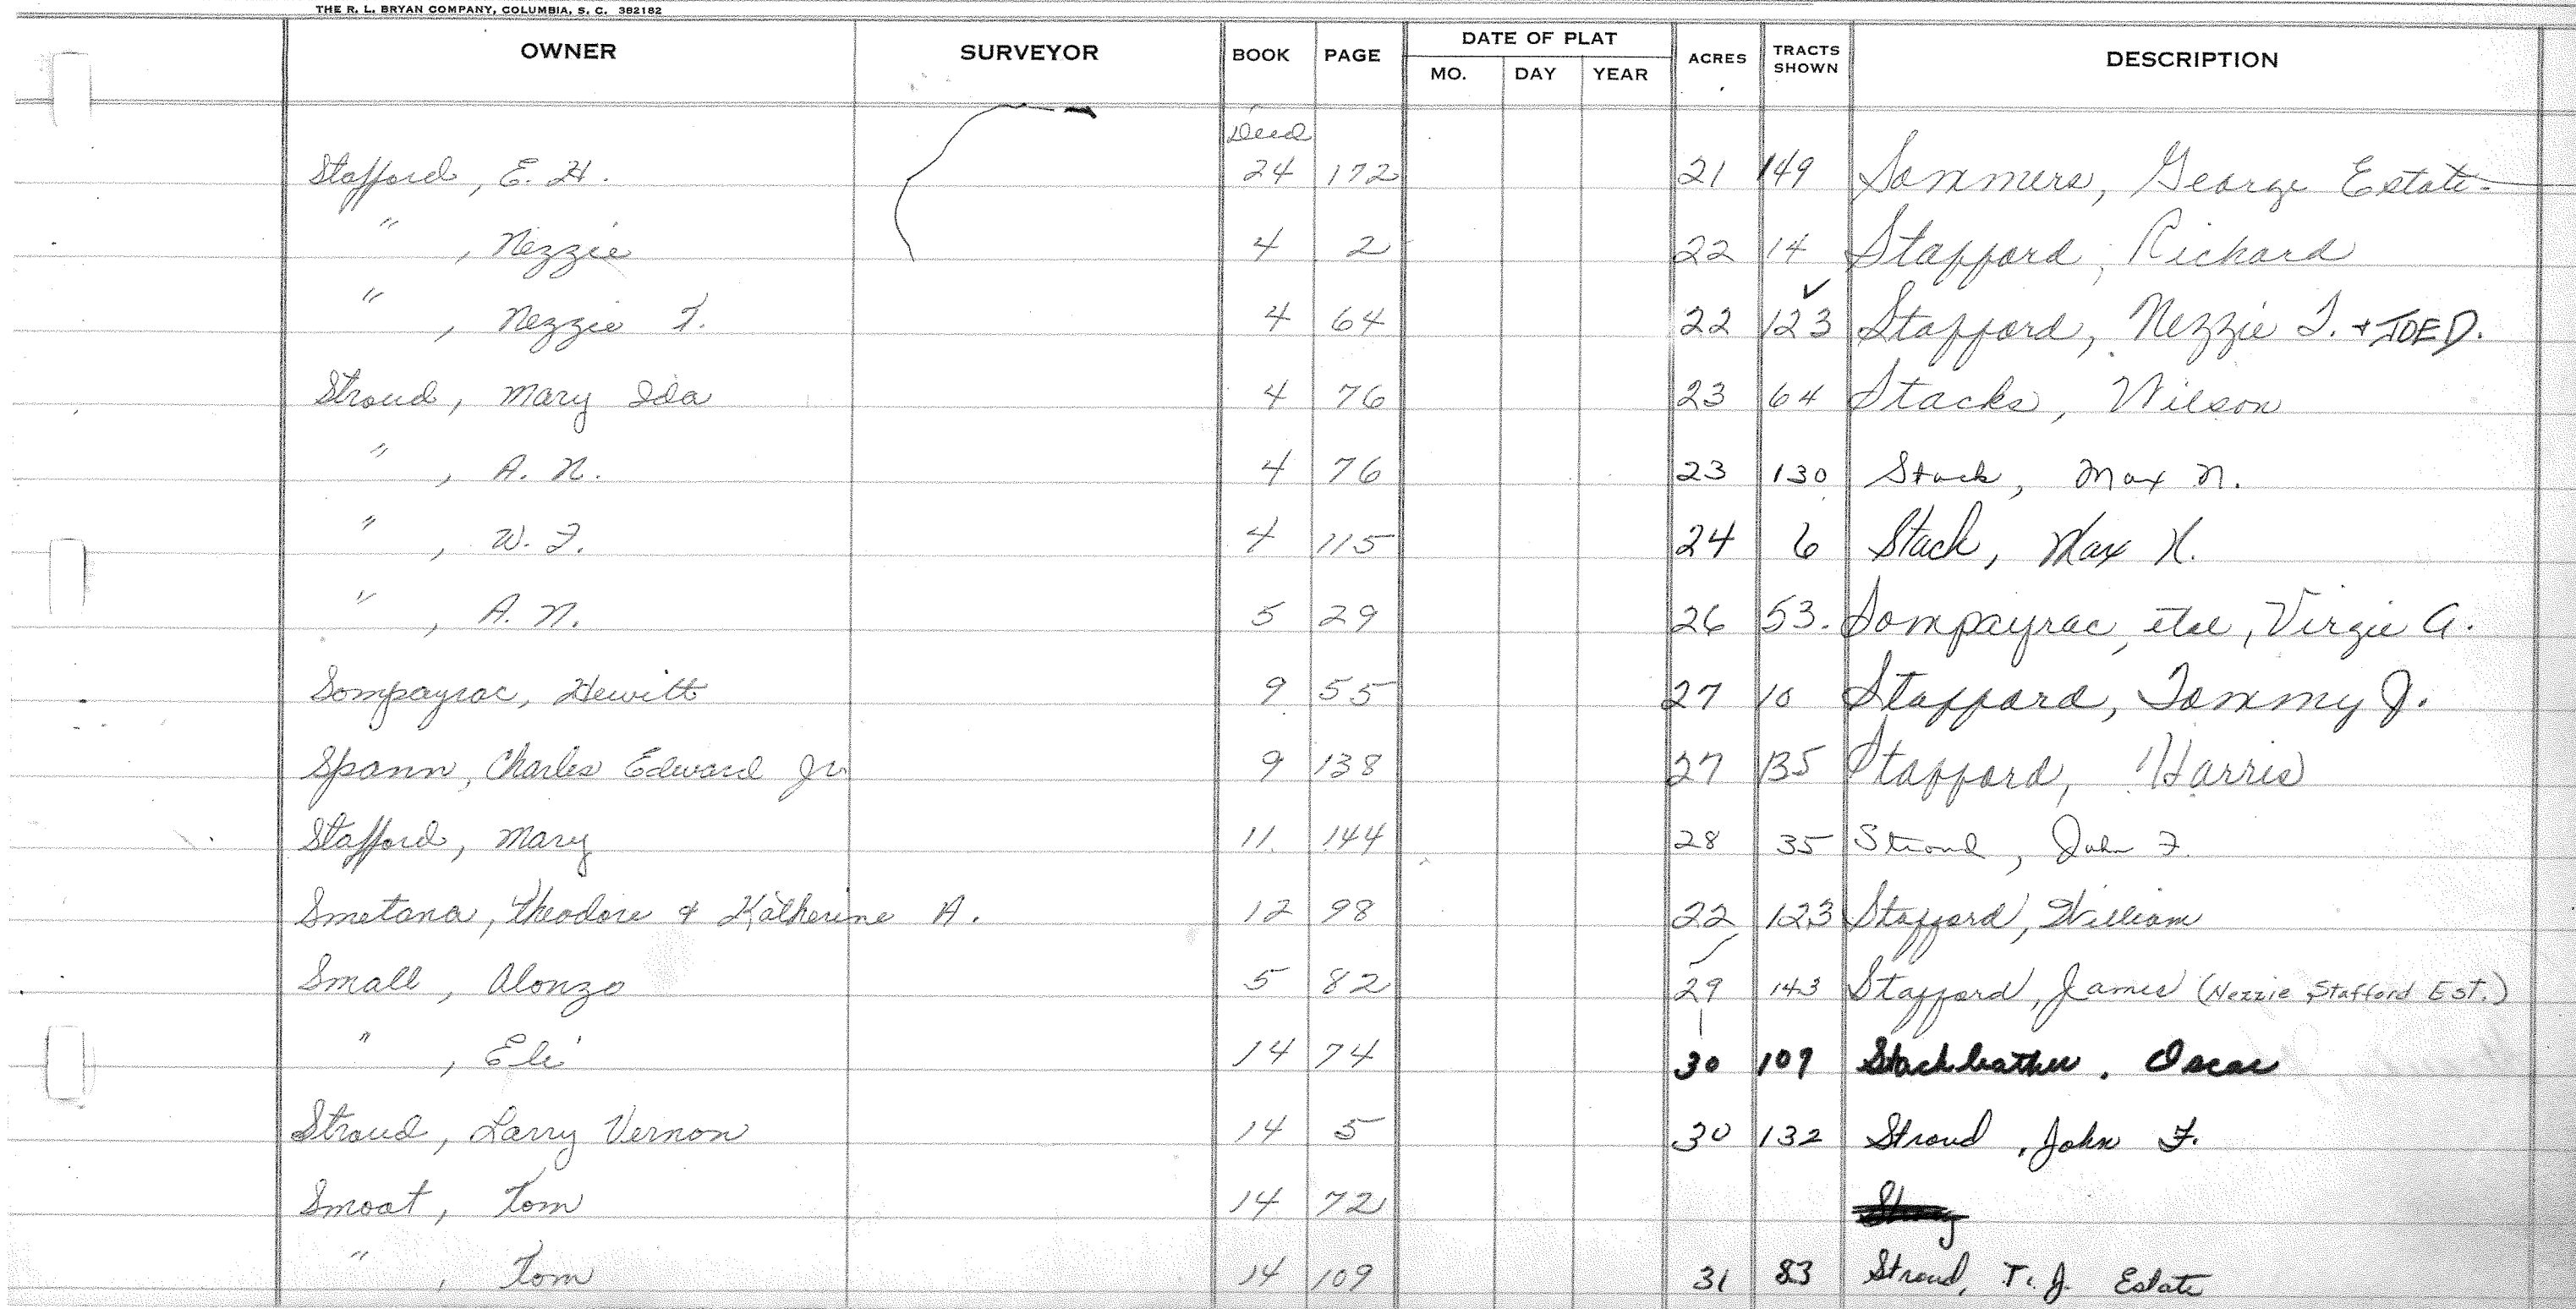 THE R. L. BRYAN COMPANY, COLUMBIA, S. C. 382182
OWNER SURVEYOR BOOK PAGE DATE OF PLAT ACRES TRACTS SHOWN DESCRIPTION
MO. DAY YEAR
Deed
Stafford, E. H. 24 172 21 149 Sommers, George Estate
" , Nezzie 4 2 22 14 Stafford, Richard
" , Nezzie T. 4 64 22 123 ✓ Stafford, Nezzie T. + JOE D.
Stroud, Mary Ida 4 76 23 64 Stacks, Wilson
" , A. N. 4 76 23 130 Stack, Max N.
" , W. F. 4 115 24 6 Stack, Max N.
" , A. N. 5 29 26 53. Sompayrac, etal, Virgie A.
Sompayrac, Hewitt 9 55 27 10 Stafford, Tommy J.
Spann, Charles Edward Jr. 9 138 27 135 Stafford, Harris
Stafford, Mary 11 144 28 35 Stroud, John F.
Smetana, Theodore & Katherine A. 12 98 22 123 Stafford, William
Small, Alonzo 5 82 29 143 Stafford, James (Nezzie Stafford Est.)
" , Eli 14 74 30 109 Stackleather, Oscar
Stroud, Larry Vernon 14 5 30 132 Stroud, John F.
Smoat, Tom 14 72
" , Tom 14 109 31 83 Stroud, T. J. Estate